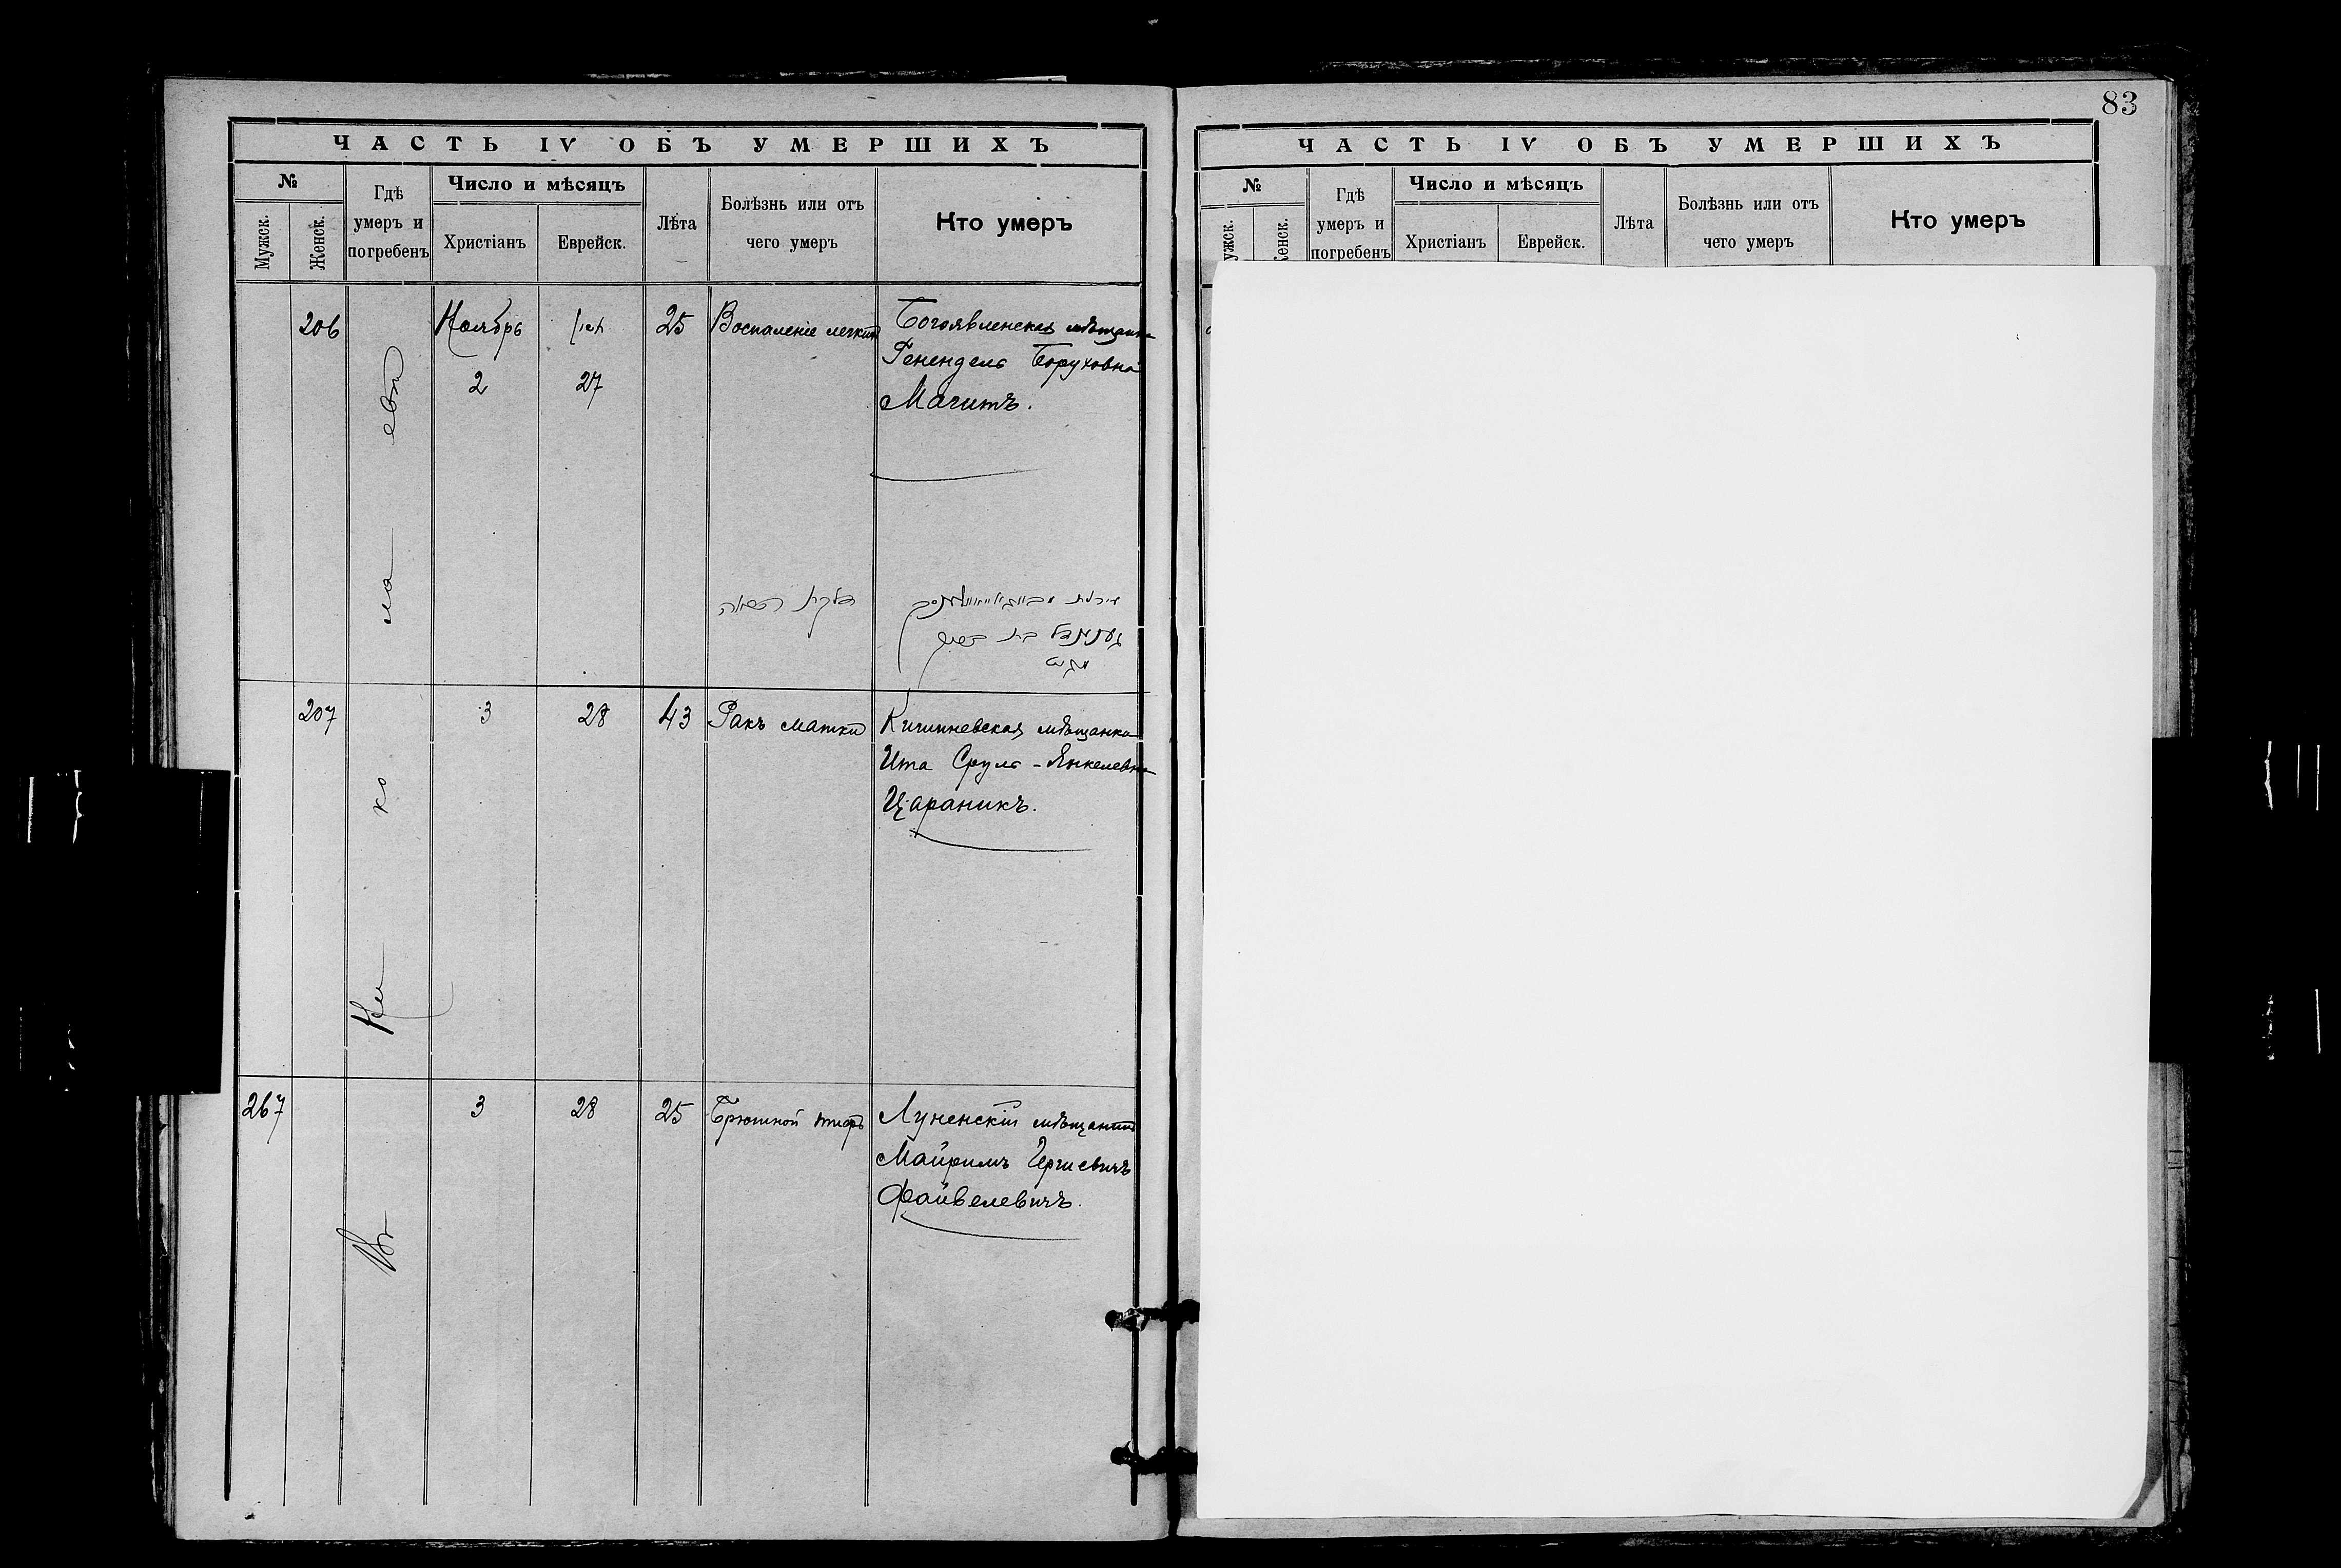 83
ЧАСТЬ IV ОБЪ УМЕРШИХЪ
№
Мужск.
Женск.
Гдѣ
умеръ и
погребенъ
Число и мѣсяцъ
Христіанъ
Еврейск.
Лѣта
Болѣзнь или отъ
чего умеръ
Кто умеръ
206
Ноябрь
2
27
25
Воспаленіе легкихъ
Богоявленская мѣщанка
Генендель Боруховна
Магитъ.
דלקת הריאה
גענענדל בת ברוך
מגיט
207
3
28
43
Ракъ матки
Кишиневская мѣщанка
Ита Сруль-Янкелевна
Цараникъ.
267
3
28
25
Брюшной тифъ
Луненскій мѣщанинъ
Майримъ
Файвелевичъ.
Въ Ни ко ла евѣ
ЧАСТЬ IV ОБЪ УМЕРШИХЪ
№
ужск.
Кенск.
Гдѣ
умеръ и
погребенъ
Число и мѣсяцъ
Христіанъ
Еврейск.
Лѣта
Болѣзнь или отъ
чего умеръ
Кто умеръ